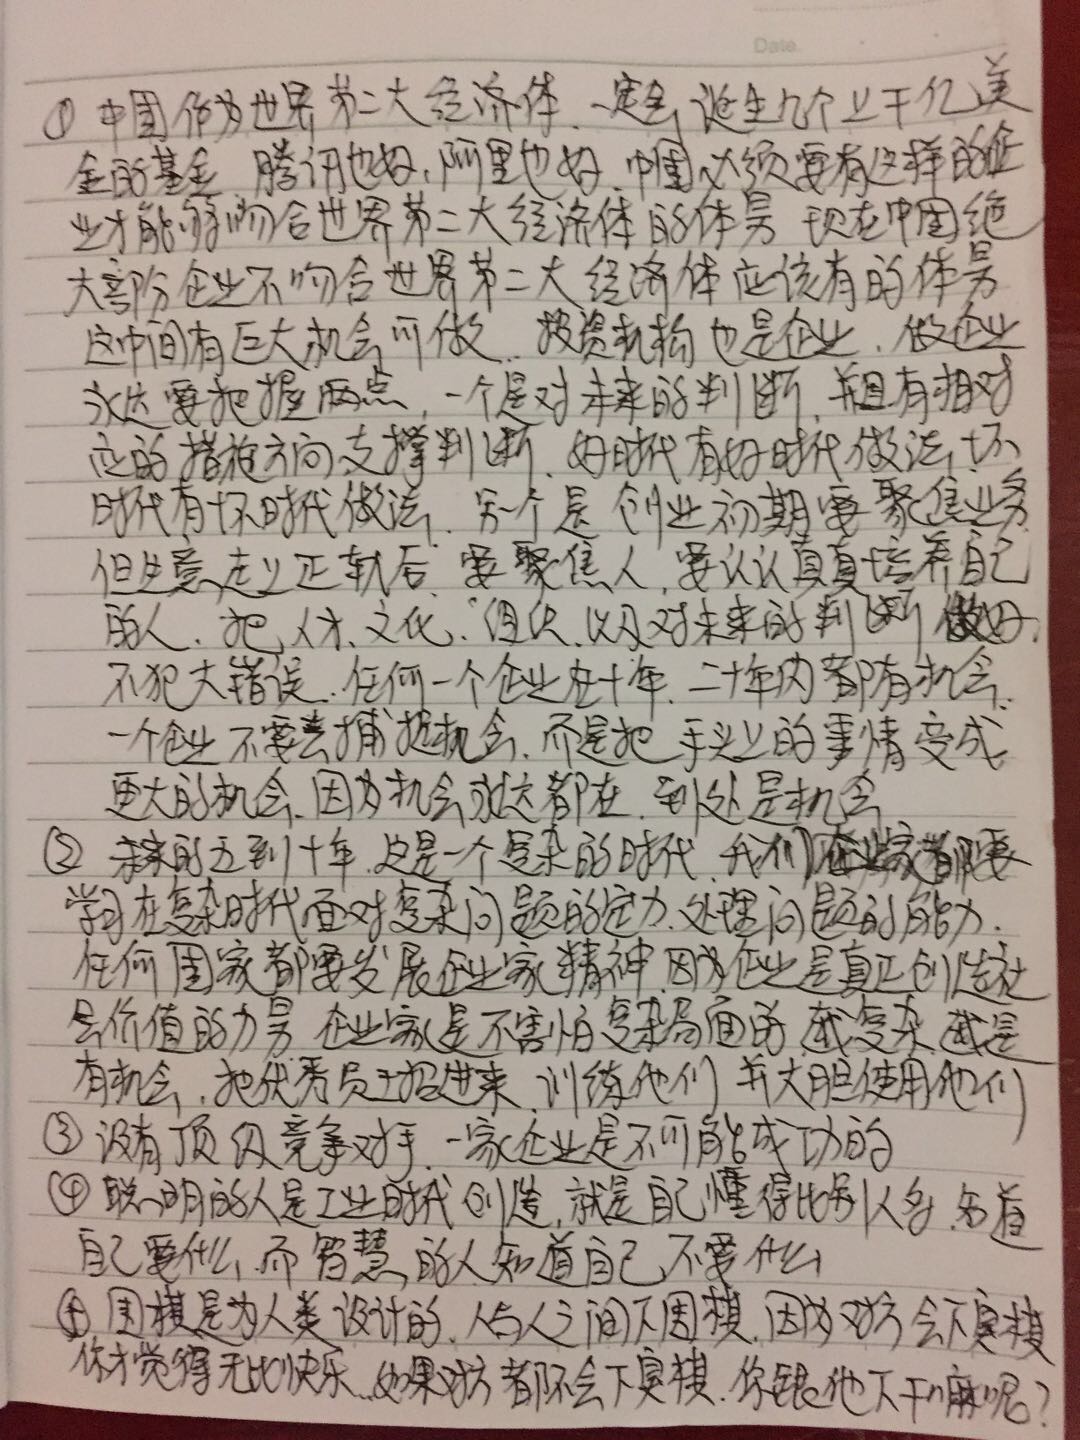 Date.
① 中国作为世界第二大经济体、一定会诞生几个上千亿美
金的基金、腾讯也好、阿里也好、中国必须要有这样的企
业才能够吻合世界第二大经济体的体量 现在中国绝
大部分企业不吻合世界第二大经济体应该有的体量
这中间有巨大机会可做、投资机构也是企业、做企业
永远要把握两点、一个是对未来的判断、并且有相对
应的措施方向支撑判断、好时代有好时代做法、坏
时代有坏时代做法、另一个是创业初期要聚焦业务
但生意走上正轨后、要聚焦人、要认认真真培养自己
的人、把人才、文化、组织、以及对未来的判断做好、
不犯大错误、任何一个企业在十年、二十年内都有机会、
一个企业不要去捕捉机会、而是把手头上的事情变成
更大的机会、因为机会永远都在、到处是机会
② 未来的五到十年、这是一个复杂的时代、我们企业家都要
学习在复杂时代面对复杂问题的定力、处理问题的能力、
任何国家都要发展企业家精神、因为企业是真正创造社
会价值的力量 企业家是不害怕复杂局面的、越复杂、越是
有机会、把优秀员工招进来、训练他们 并大胆使用他们
③ 没有顶级竞争对手、一家企业是不可能成功的
④ 聪明的人是工业时代创造、就是自己懂得比别人多、知道
自己要什么、而智慧的人知道自己不要什么
⑤ 围棋是为人类设计的、人与人之间下围棋、因为对方会下臭棋
你才觉得无比快乐、如果对方都不会下臭棋、你跟他下干嘛呢？